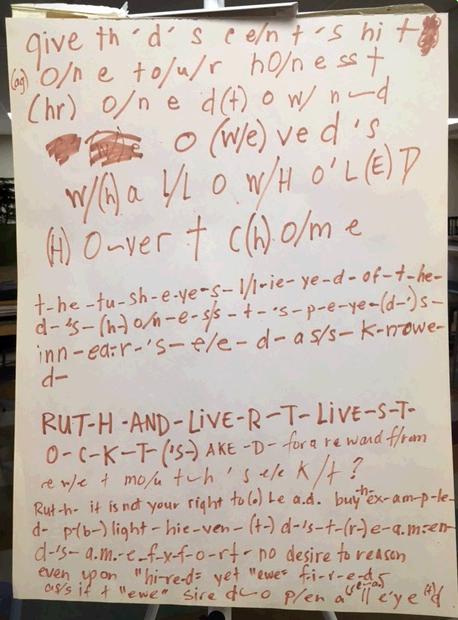 give th'd's ce/n t's hi t
(ag) O/n e to/u/r hO/ne s s t
(hr) O/n e d(t) o w/ n-d
w/e O (W/e) ve d's
w/(h) a L/L O W/H O'L (E) D
(H) O-ver t C(h) O/m e
t-he-tu-sh-e-ye-s-l/l-ie-ye-d-of-t-he-
d-'s-(h-) o/n-e-s/s-t-'s-p-e-ye-(d-')s-
inn-ea-r-'s-e/e-d-as/s-k-nowe-
d-
RUT-H-AND-LiVE-R-T-LiVE-S-T-
O-C-K-T-('S-) AKE-D- for a reward f/rom
re w/e t mo/u t-h's e/e k/t?
Rut-h- it is not your right to(o) Le a.d. buy-h-ex-am-p-le-
d- p(b-)light-hie-ven-(t-) d-'s-t-(r-)e-a.m.-en-
d-'s-a.m.-e-f-x-f-o-r-t- no desire to reason
even upon "hi-re-d= yet "ewe= f-i-r-e-d,
as/s if t "ewe" sire d-o p/en a"ll e'ye d